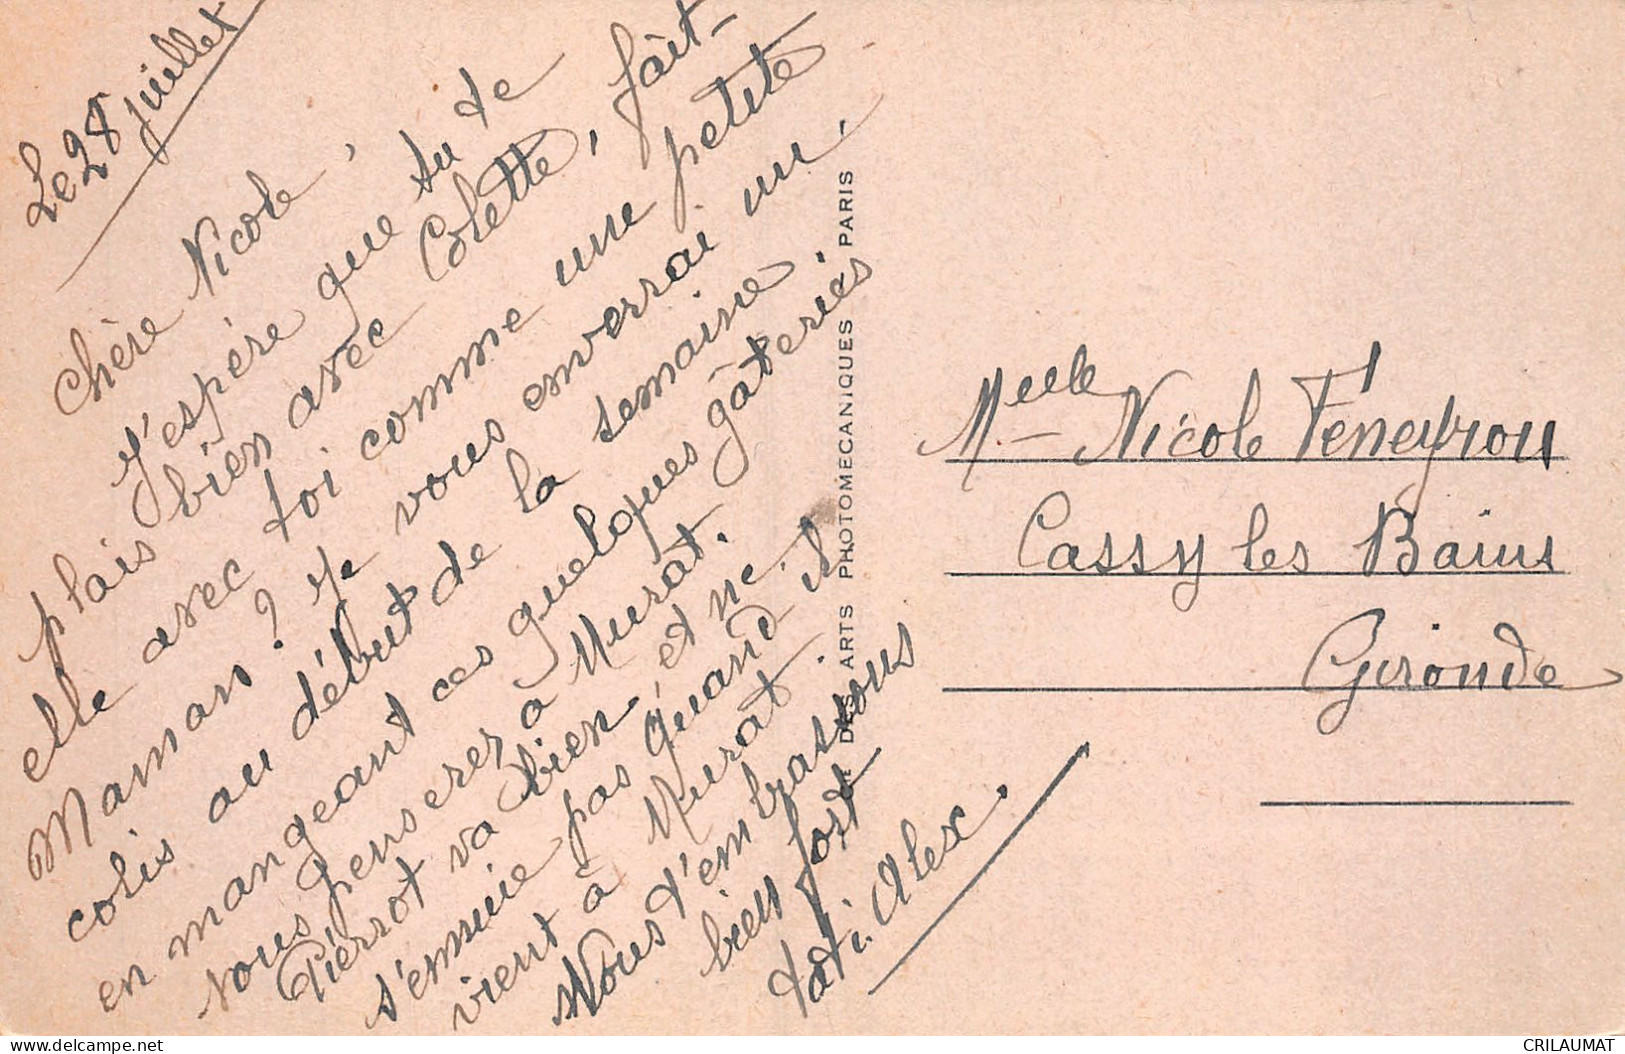 Le 28 Juillet
Chère Nicole,
J'espère que tu te
plais bien avec Colette, fait-
elle avec toi comme une petite
Maman? Je vous enverrai un
colis au début de la semaine.
en mangeant ces quelques gâteries
vous penserez à Murat.
Pierrot va bien et ne
s'ennuie pas quand il
vient à Murat.
Nous t'embrassons
bien fort
tati. Alex.
DES ARTS PHOTOMECANIQUES - PARIS
Melle Nicole Féneyrou
Cassy les Bains
Gironde
delcampe.net
CRILAUMAT